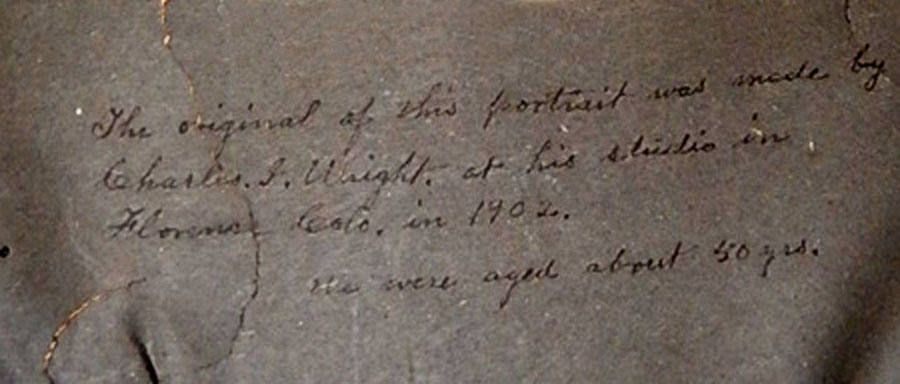 The original of this portrait was made by
Charles. I. Wright. at his studio in
Florense Colo. in 1902.
We were aged about 50 yrs.